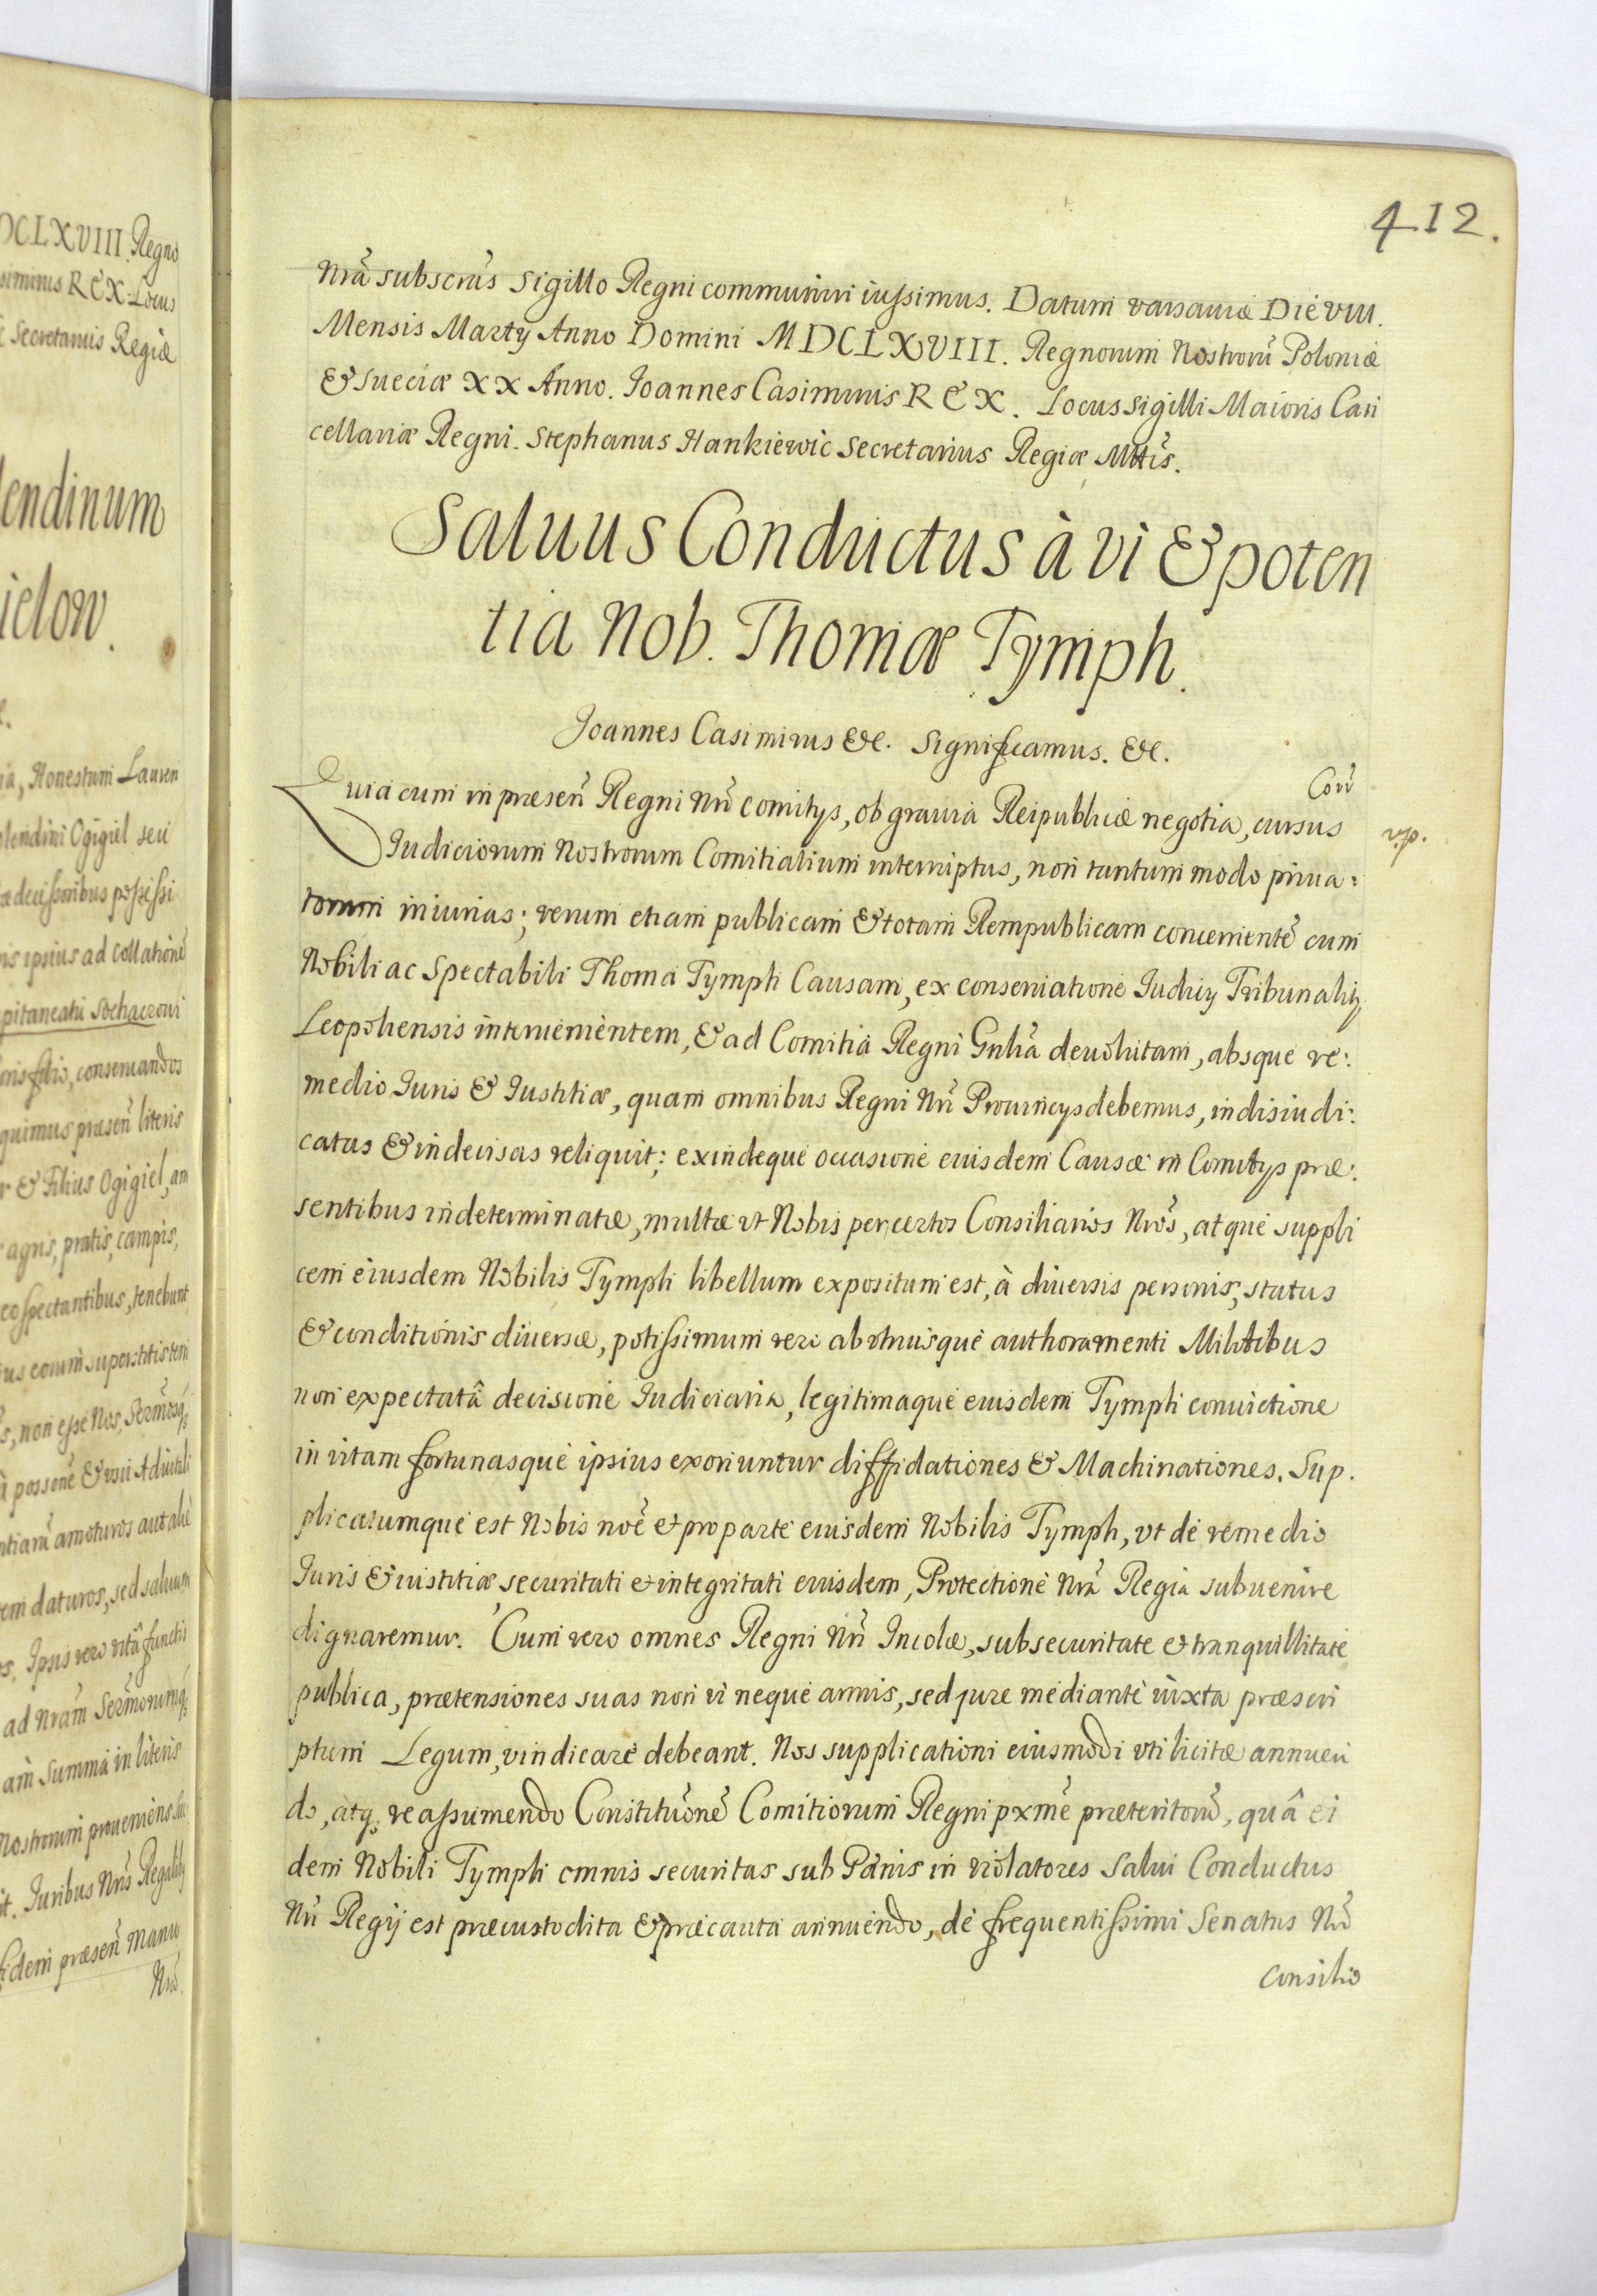 DCLXVIII. Regno
simirus REX. Locus
Secretarius Regiæ
lendinum
ielow.
ia, Honestum Lauren
olendini Ogigiel seu
decessoribus possessi
is ipsius ad collationē
pitaneatu Sochaczovi
conseruandos
quimus præsen̄ literis
r & Filius Ogigiel, am
agris, pratis, campis,
eo spectantibus, tenebunt
non esse Nos, Serm̄osq;
ntiam̄ amoturos aut alie
em daturos, sed saluum
os. Ipsis vero vitâ functis
ad Nram̄ Serm̄orumq;
am Summa in literis
Nostrorum proueniens
it. Iuribus Nris̄ Regalib;
fidem præsen̄ manu
Nrā
412.
Nrā subscrūs Sigillo Regni communiri iussimus. Datum varsauiæ Die VIII.
Mensis Marty Anno Domini MDCLXVIII. Regnorum Nostrorū Poloniæ
& Sueciæ XX Anno. Ioannes Casimirus REX. Locus Sigilli Maioris Can
cellariæ Regni. Stephanus Hankiewic Secretarius Regiæ Mttis̄.
Saluus Conductus à vi & poten
tia Nob. Thomæ Tymph.
Ioannes Casimirus &c. Significamus. &c.
Quia cum in præsen̄ Regni Nrī comitys, ob grauia Reipublicæ negotia, cursus
Iudiciorum Nostrorum Comitialium interruptus, non tantum modo priua:
torum iniurias; verum etiam publicam & totam Rempublicam concernentē cum
Nobili ac Spectabili Thoma Tymph Causam, ex conseruatione Iudicy Tribunalis
Leopoliensis interuenientem, & ad Comitia Regni Gnlīa deuolutam, absque re:
medio Iuris & Iustitiæ, quam omnibus Regni Nrī Prouincys debemus, indisiudi:
catas & indecisas reliquit; exindeque occasione eiusdem Causæ in Comitys præ:
sentibus indeterminatæ, multæ vt Nobis per certos Consiliarios Nrōs, atque suppli
cem eiusdem Nobilis Tymph libellum expositum est, à diuersis personis, status
& conditionis diuersæ, potissimum vero ab vtriusque authoramenti Militibus
non expectatâ decisione Iudiciaria, legitimaque eiusdem Tymph conuictione
in vitam fortunasque ipsius exoriuntur diffidationes & Machinationes. Sup.
plicatumque est Nobis noē et pro parte eiusdem Nobilis Tymph, vt de remedio
Iuris & iustitiæ securitati et integritati eiusdem, Protectione Nrā Regia subuenire
dignaremur. Cum vero omnes Regni Nrī Incolæ, sub securitate et tranquillitate
publica, prætensiones suas non vi neque armis, sed jure mediante iuxta præscri
ptum Legum, vindicare debeant. Nos supplicationi eiusmodi vti licitæ annuen
do, atq; reassumendo Constituōne Comitiorum Regni pxmē præteritorū, quâ ei
dem Nobili Tymph omnis securitas sub Pænis in violatores Salui Conductus
Nrī Regij est præcustodita & præcauta annuendo, de frequentissimi Senatus Nrī
consilio